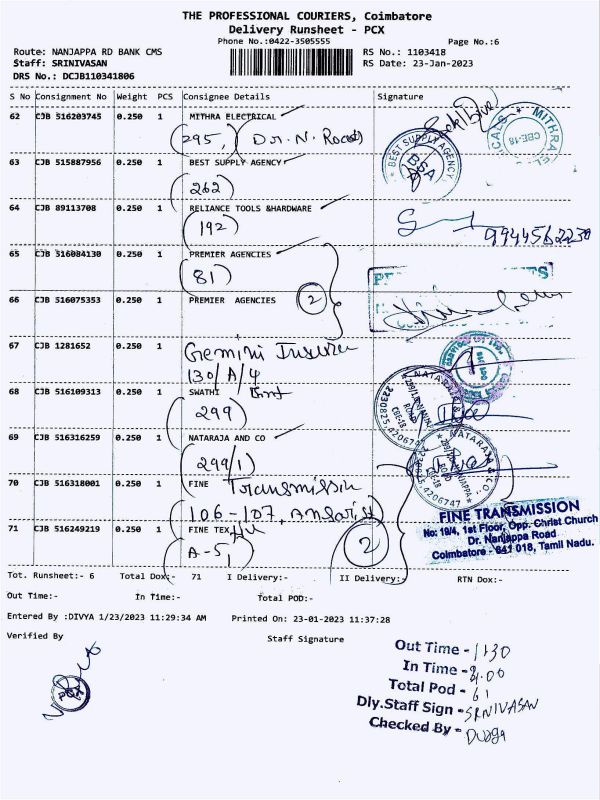 THE PROFESSIONAL COURIERS, Coimbatore
Delivery Runsheet - PCX
Phone No.:0422-3505555
Page No.:6
Route: NANJAPPA RD BANK CMS
RS No.: 1103418
Staff: SRINIVASAN
RS Date: 23-Jan-2023
DRS No.: DCJB110341806
S No Consignment No Weight PCS Consignee Details Signature
62 CJB 516203745 0.250 1 MITHRA ELECTRICAL
295, Dr. N. Road
MITHRA EL
CBE-18
63 CJB 515887956 0.250 1 BEST SUPPLY AGENCY
262
BEST SUPPLY AGENCY
BSA
64 CJB 89113708 0.250 1 RELIANCE TOOLS &HARDWARE
192
9944562230
65 CJB 516084130 0.250 1 PREMIER AGENCIES
81
66 CJB 516075353 0.250 1 PREMIER AGENCIES
2
67 CJB 1281652 0.250 1 Gemini
130/A/4
68 CJB 516109313 0.250 1 SWATHI
299
69 CJB 516316259 0.250 1 NATARAJA AND CO
299/1
NATARAJA &
CBE-18
70 CJB 516318001 0.250 1 FINE Transmission
106-107,
71 CJB 516249219 0.250 1 FINE TEX
A-5
2
FINE TRANSMISSION
No: 19/4, 1st Floor, Opp. Christ Church
Dr. Nanjappa Road
Coimbatore - 641 018, Tamil Nadu.
Tot. Runsheet:- 6 Total Dox:- 71 I Delivery:- II Delivery:- RTN Dox:-
Out Time:- In Time:- Total POD:-
Entered By :DIVYA 1/23/2023 11:29:34 AM Printed On: 23-01-2023 11:37:28
Verified By Staff Signature
Out Time - 1130
In Time - 4.00
Total Pod - 61
Dly.Staff Sign - SRNIVASAN
Checked By - Durga
PCX